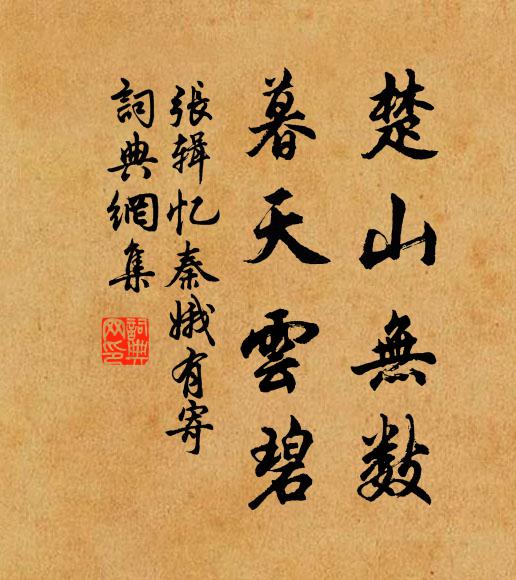 楚山無数
暮天雲碧
張辑忆秦娥有寄
詞典網集
詞典